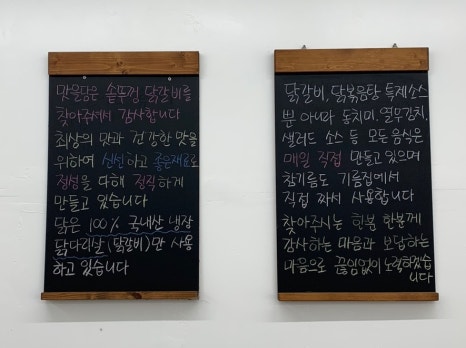 맛을담은 솥뚜껑 닭갈비를
찾아주셔서 감사합니다
최상의 맛과 건강한 맛을
위하여 신선하고 좋은재료로
정성을 다해 정직하게
만들고 있습니다
닭은 100% 국내산 냉장
닭다리살(닭갈비)만 사용
하고 있습니다
닭갈비, 닭볶음탕 특제소스
뿐 아니라 동치미, 열무김치,
샐러드 소스 등 모든음식은
매일 직접 만들고 있으며
참기름도 기름집에서
직접 짜서 사용합니다
찾아주시는 한분 한분께
감사하는 마음과 보답하는
마음으로 끊임없이 노력하겠습
니다